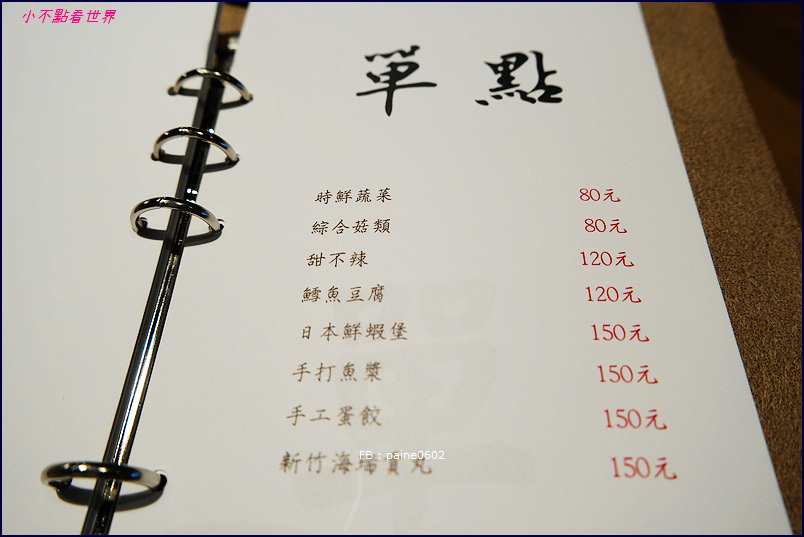 小不點看世界
單點
時鮮蔬菜 80元
綜合菇類 80元
甜不辣 120元
鱈魚豆腐 120元
日本鮮蝦堡 150元
手打魚漿 150元
手工蛋餃 150元
新竹海瑞貢丸 150元
FB : paine0602